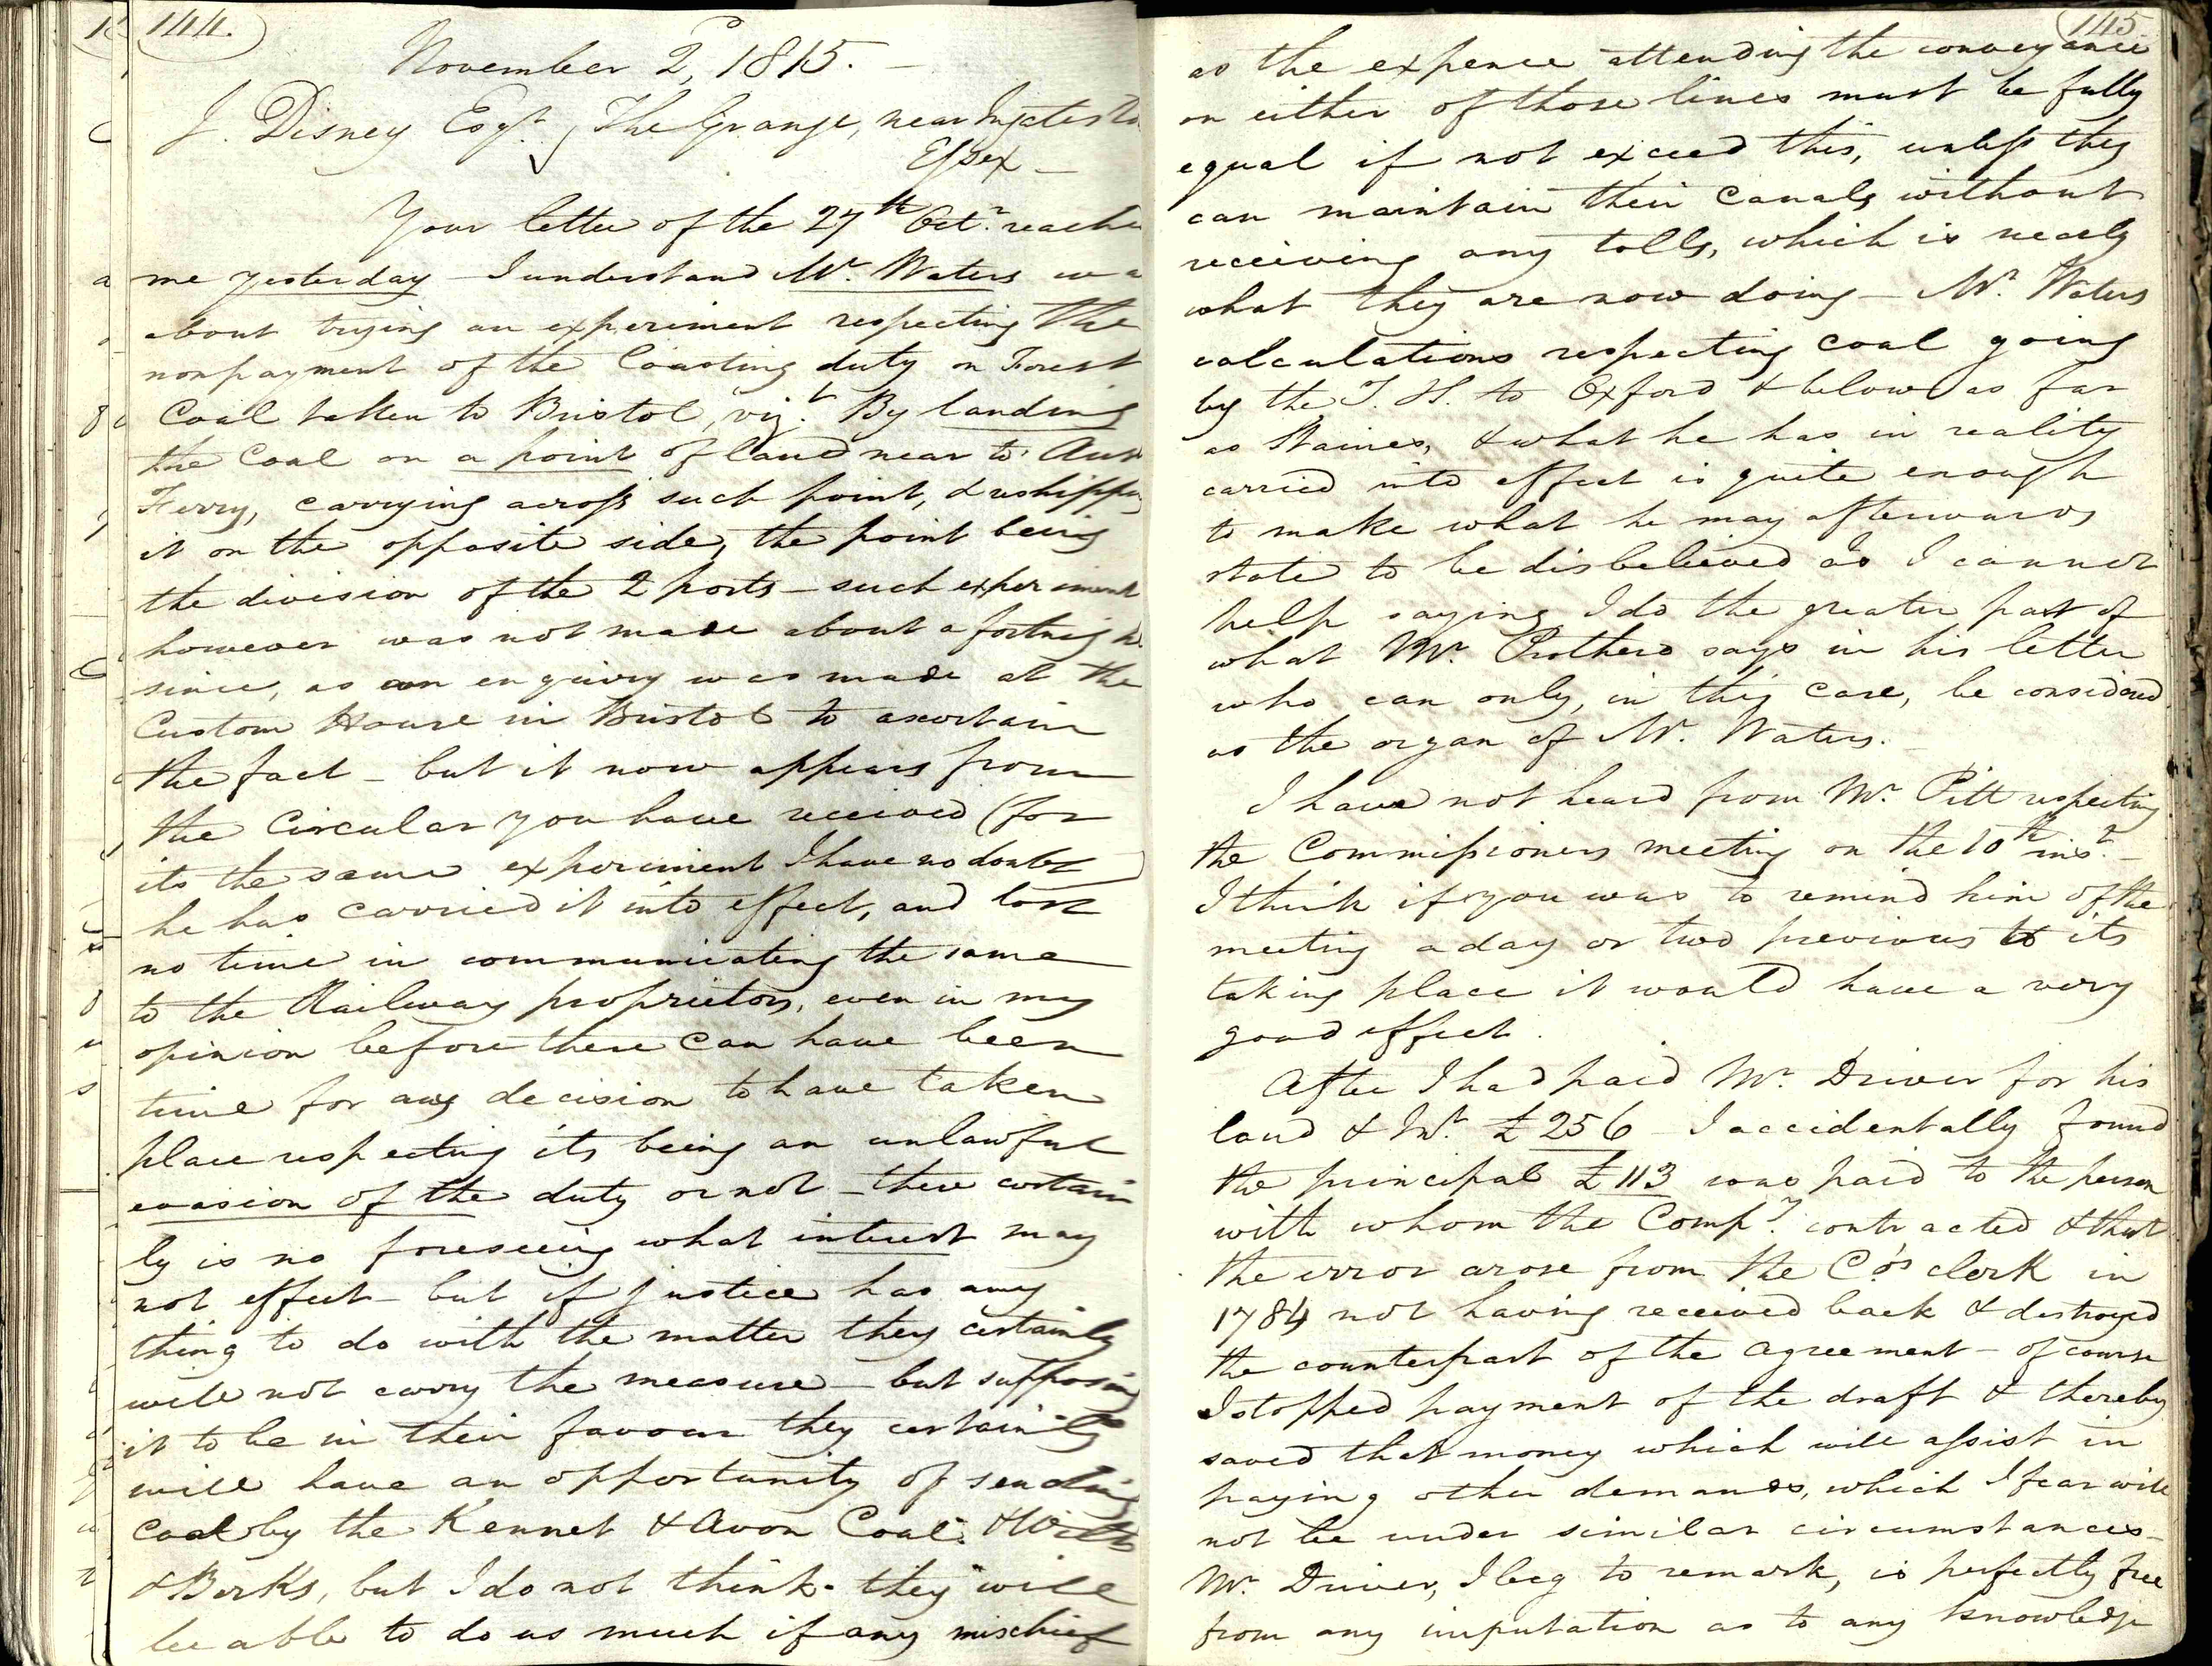 144.
November 2d, 1815. —
J. Disney Esqr. The Grange, near Ingatesto
Essex —
Your letter of the 27th Octr. reache
me yesterday — I understand Mr. Waters wa
about trying an experiment respecting the
nonpayment of the Coasting duty on Forest
Coal taken to Bristol, vizt. By landing
the Coal on a point of land near to Aus
Ferry, carrying across such point, & reshippg
it on the opposite side, the point being
the division of the 2 ports — such experiment
however was not made about a fortnigh
since, as an enquiry was made at the
Custom House in Bristol to ascertain
the fact — but it now appears from
the Circular you have received (for
its the same experiment I have no doubt)
he has carried it into effect, and lost
no time in communicating the same
to the Railway proprietors, even in my
opinion before there can have been
time for any decision to have taken
place respecting its being an unlawful
evasion of the duty or not — there certain
ly is no foreseeing what interest may
not effect — but if justice has any
thing to do with the matter they certainly
will not carry the measure — but supposing
it to be in their favour they certainly
will have an opportunity of sending
coal by the Kennet & Avon Coal. & Wilts
& Berks, but I do not think they will
be able to do us much if any mischief
145
as the expence attending the conveyance
on either of those lines must be fully
equal if not exceed this, unless they
can maintain their Canals without
receiving any tolls, which is nearly
what they are now doing — Mr. Waters
calculations respecting coal going
by the T. S. to Oxford & below as far
as Staines, & what he has in reality
carried into effect is quite enough
to make what he may afterwards
state to be disbelieved as I cannot
help saying I do the greater part of
what Mr. Prothero says in his letter
who can only, in this case, be considered
as the organ of Mr. Waters. —
I have not heard from Mr. Pitt respecting
the Commissioners meeting on the 10th inst. —
I think if you was to remind him of the
meeting a day or two previous to its
taking place it would have a very
good effect.
After I had paid Mr. Driver for his
land & Int. £256 I accidentally found
the principal £113 was paid to the person
with whom the Compy. contracted & that
the error arose from the Co's clerk in
1784 not having received back & destroyed
the counterpart of the agreement — of course
I stopped payment of the draft & thereby
saved that money which will assist in
paying other demands, which I fear will
not be under similar circumstances —
Mr. Driver, I beg to remark, is perfectly free
from any imputation as to any knowledge